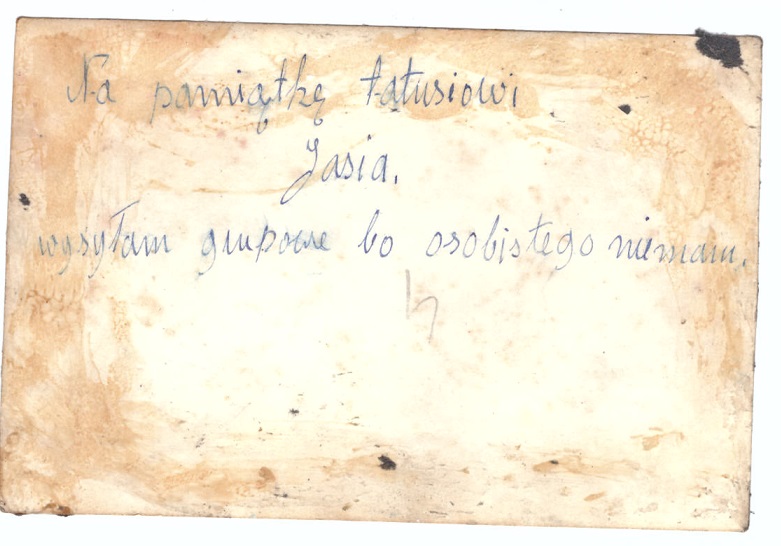 Na pamiątkę tatusiowi
Jasia.
wysyłam grupowe bo osobistego niemam.